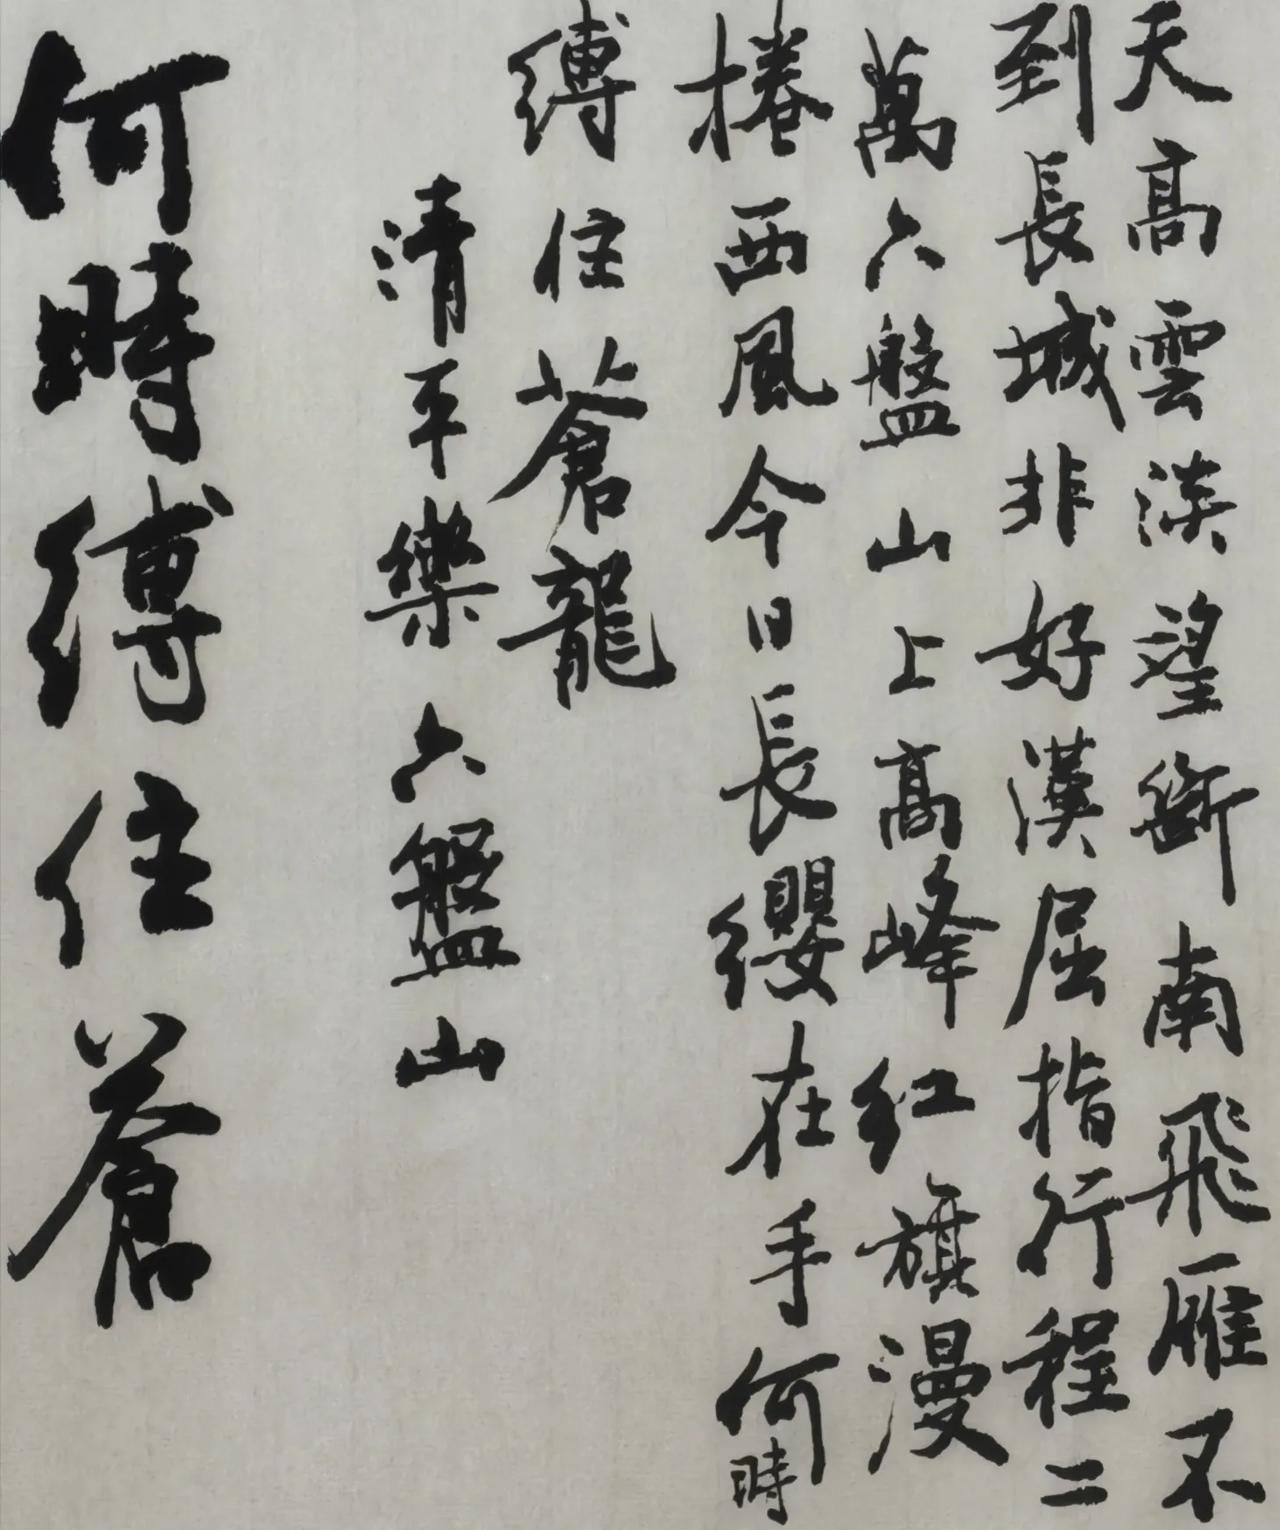 天高雲淡望断南飛雁不
到長城非好漢屈指行程二
萬六盤山上高峰紅旗漫
捲西風今日長纓在手何時
縛住蒼龍
清平樂六盤山
何時縛住蒼